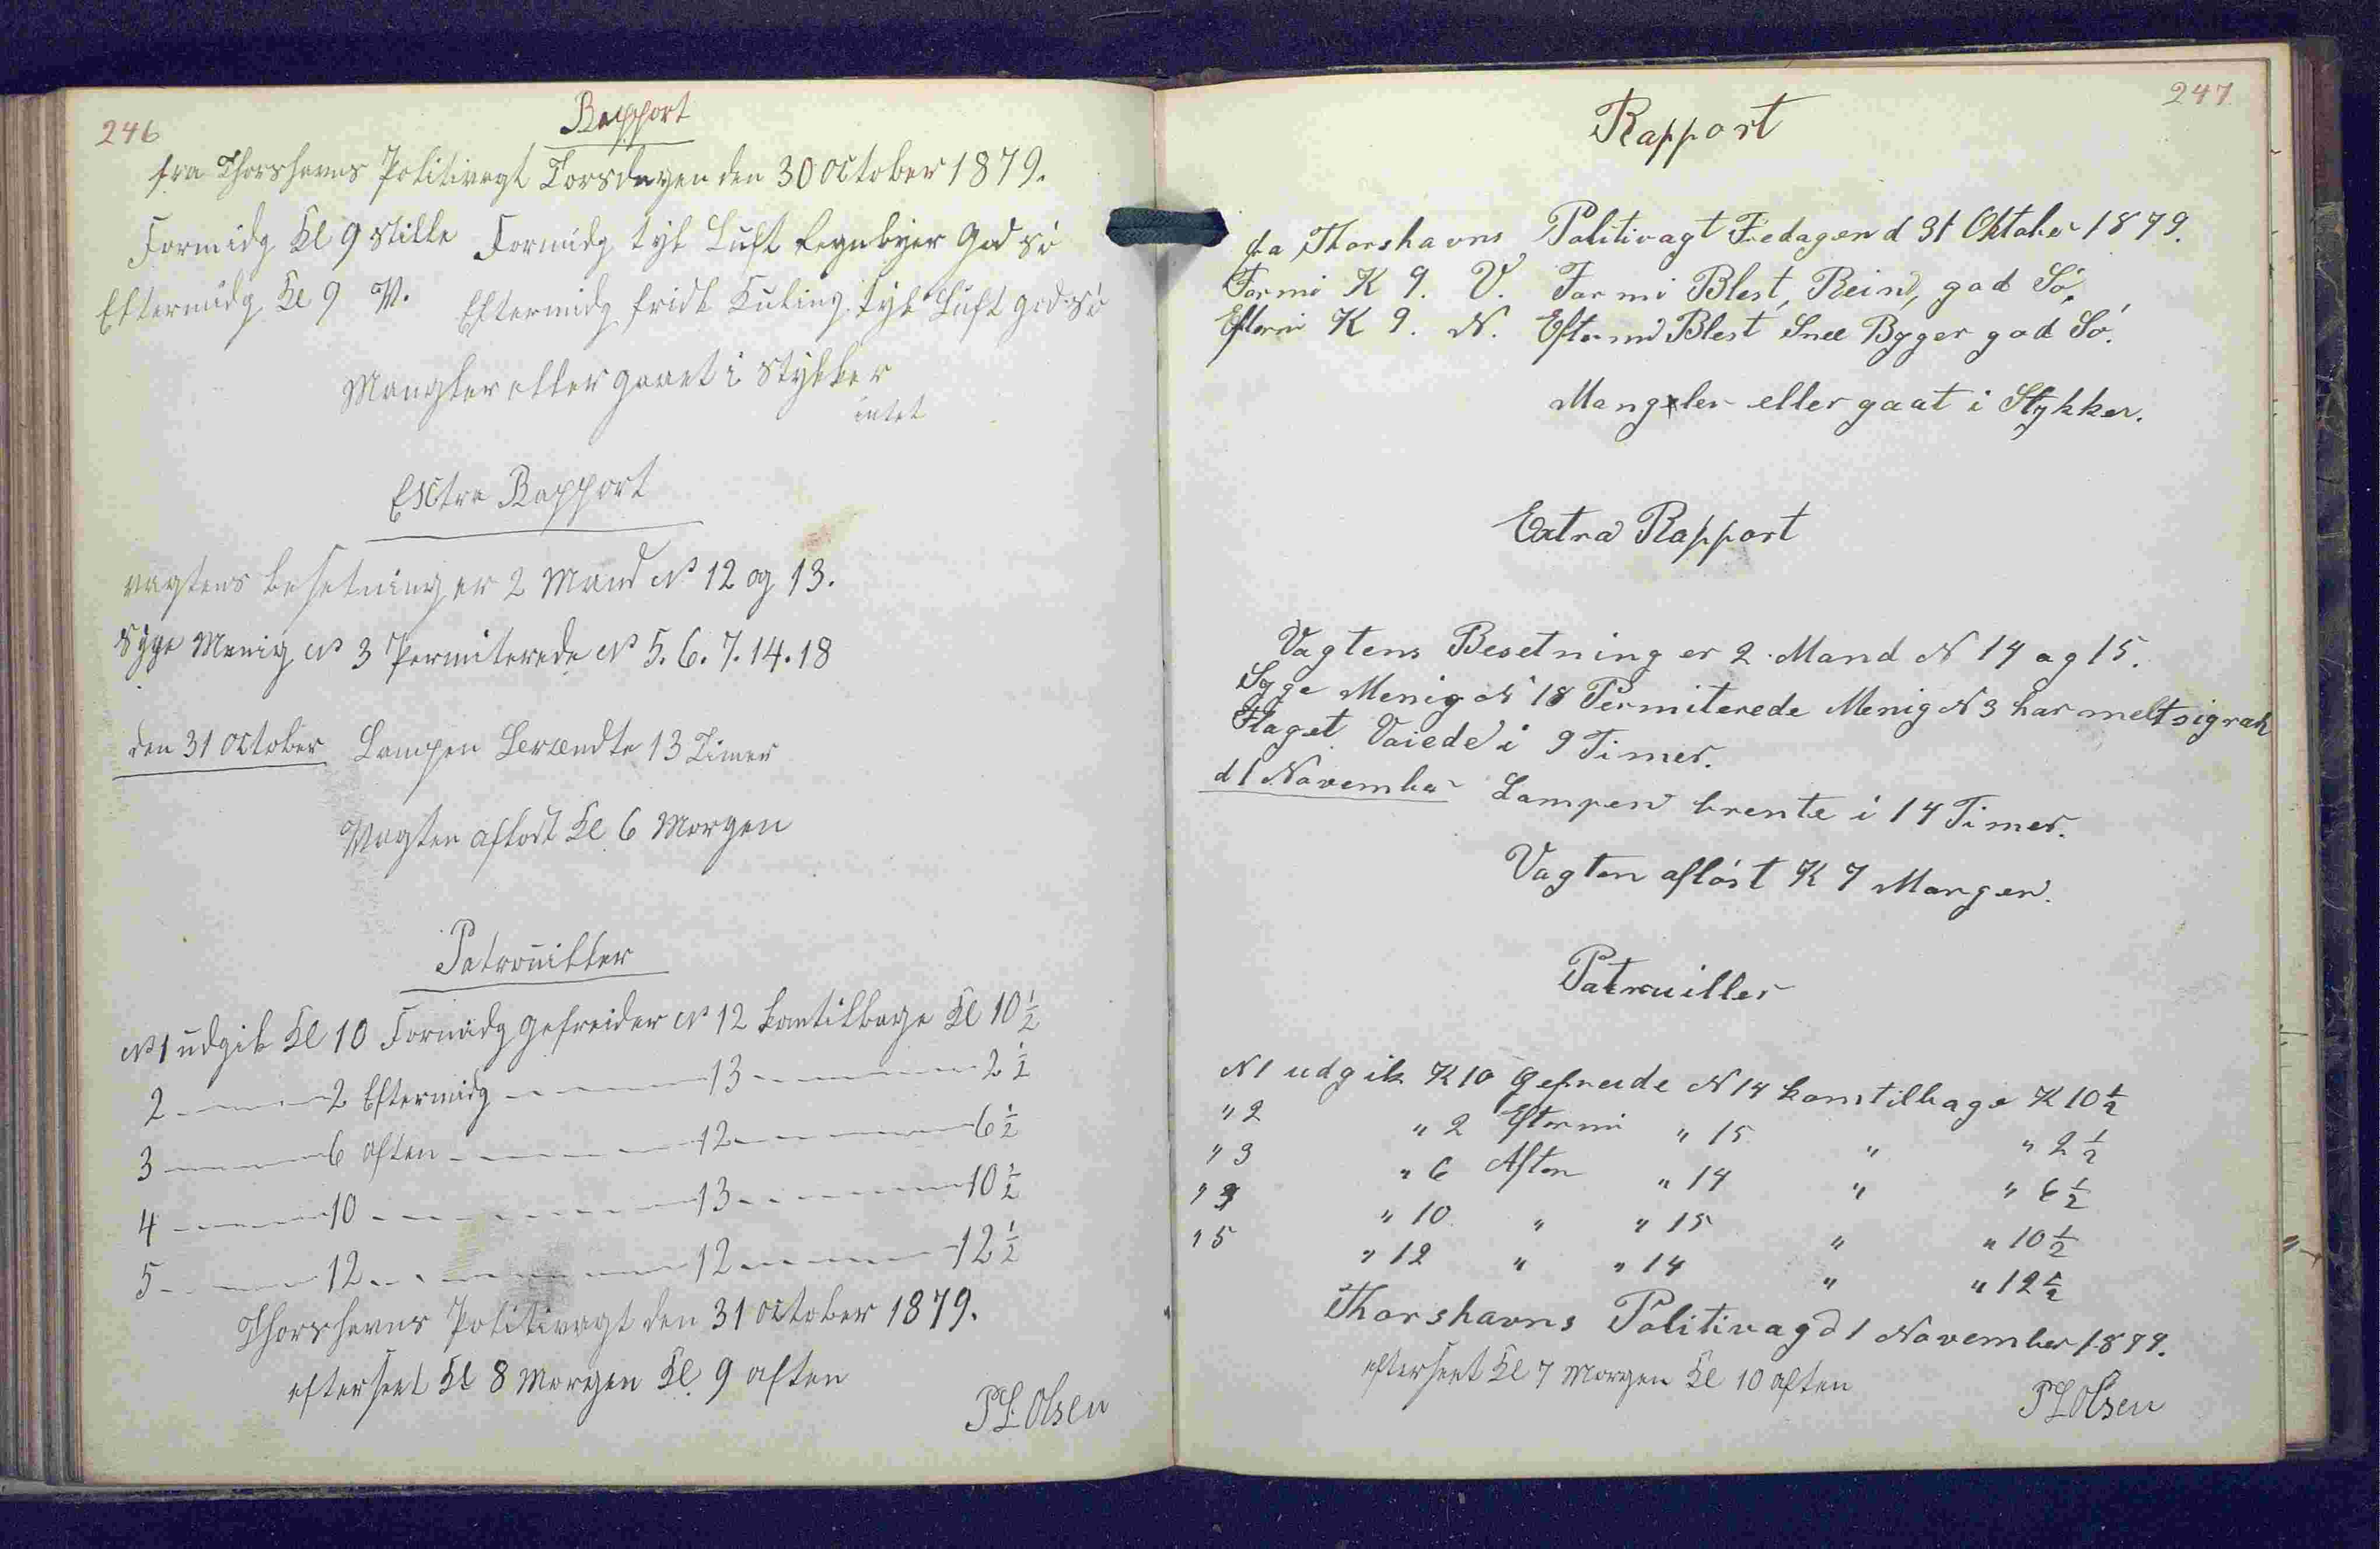 246
Rapport
fra Thorshavns Politivagt Torsdagen den 30 October 1879.
Formidg Kl 9 Stille Formidg tyk Luft Regnbyer God Sö
Eftermidg Kl 9 V. Eftermidg frisk Kuling tyk Luft god Sö
Mangler eller gaaet i Stykker
intet
Extra Rapport
vagtens besetning er 2 Mand No 12 og 13.
Syge Menig No 3 Permiterede No 5. 6. 7. 14. 18
den 31 October Lampen Brændte 13 Timer
Vagten aflöst Kl 6 Morgen
Patrouiller
No 1 udgik Kl 10 Formidg gefreider No 12 komtilbage Kl 10 ½
2 — 2 Eftermidg — 13 — 2 ½
3 — 6 aften — 12 — 6 ½
4 — 10 — 13 — 10 ½
5 — 12 — 12 — 12 ½
Thorshavns Politivagt den 31 October 1879.
efterseet Kl 8 Morgen Kl 9 aften
P L Olsen
247
Rapport
fra Thorshavns Politivagt Fredagen d 31 Oktober 1879.
Formi K 9. V. Formi Blest, Rein, god Sö,
Eftermi K 9. N. Eftermi Blest Snee Byger god Sö.
Mangler eller gaat i Stykker.
Extra Rapport
Vagtens Besetning er 2 Mand N 14 og 15.
Syge Menig N 18 Permiterede Menig N 3 har melt sig rask
Flaget Vaiede i 9 Timer.
d 1 November Lampen brente i 14 Timer.
Vagten aflöst K 7 Morgen.
Patrouiller
N 1 udgik K 10 Gefreide N 14 komtilbage K 10 ½
" 2 " 2 Eftermi " 15 " " 2 ½
" 3 " 6 Aften " 14 " " 6 ½
" " 10 " " 15 " " 10 ½
" 5 " 12 " " 14 " " 12 ½
Thorshavns Politivag d 1 November 1879.
efterseet Kl 7 Morgen Kl 10 aften
P L Olsen